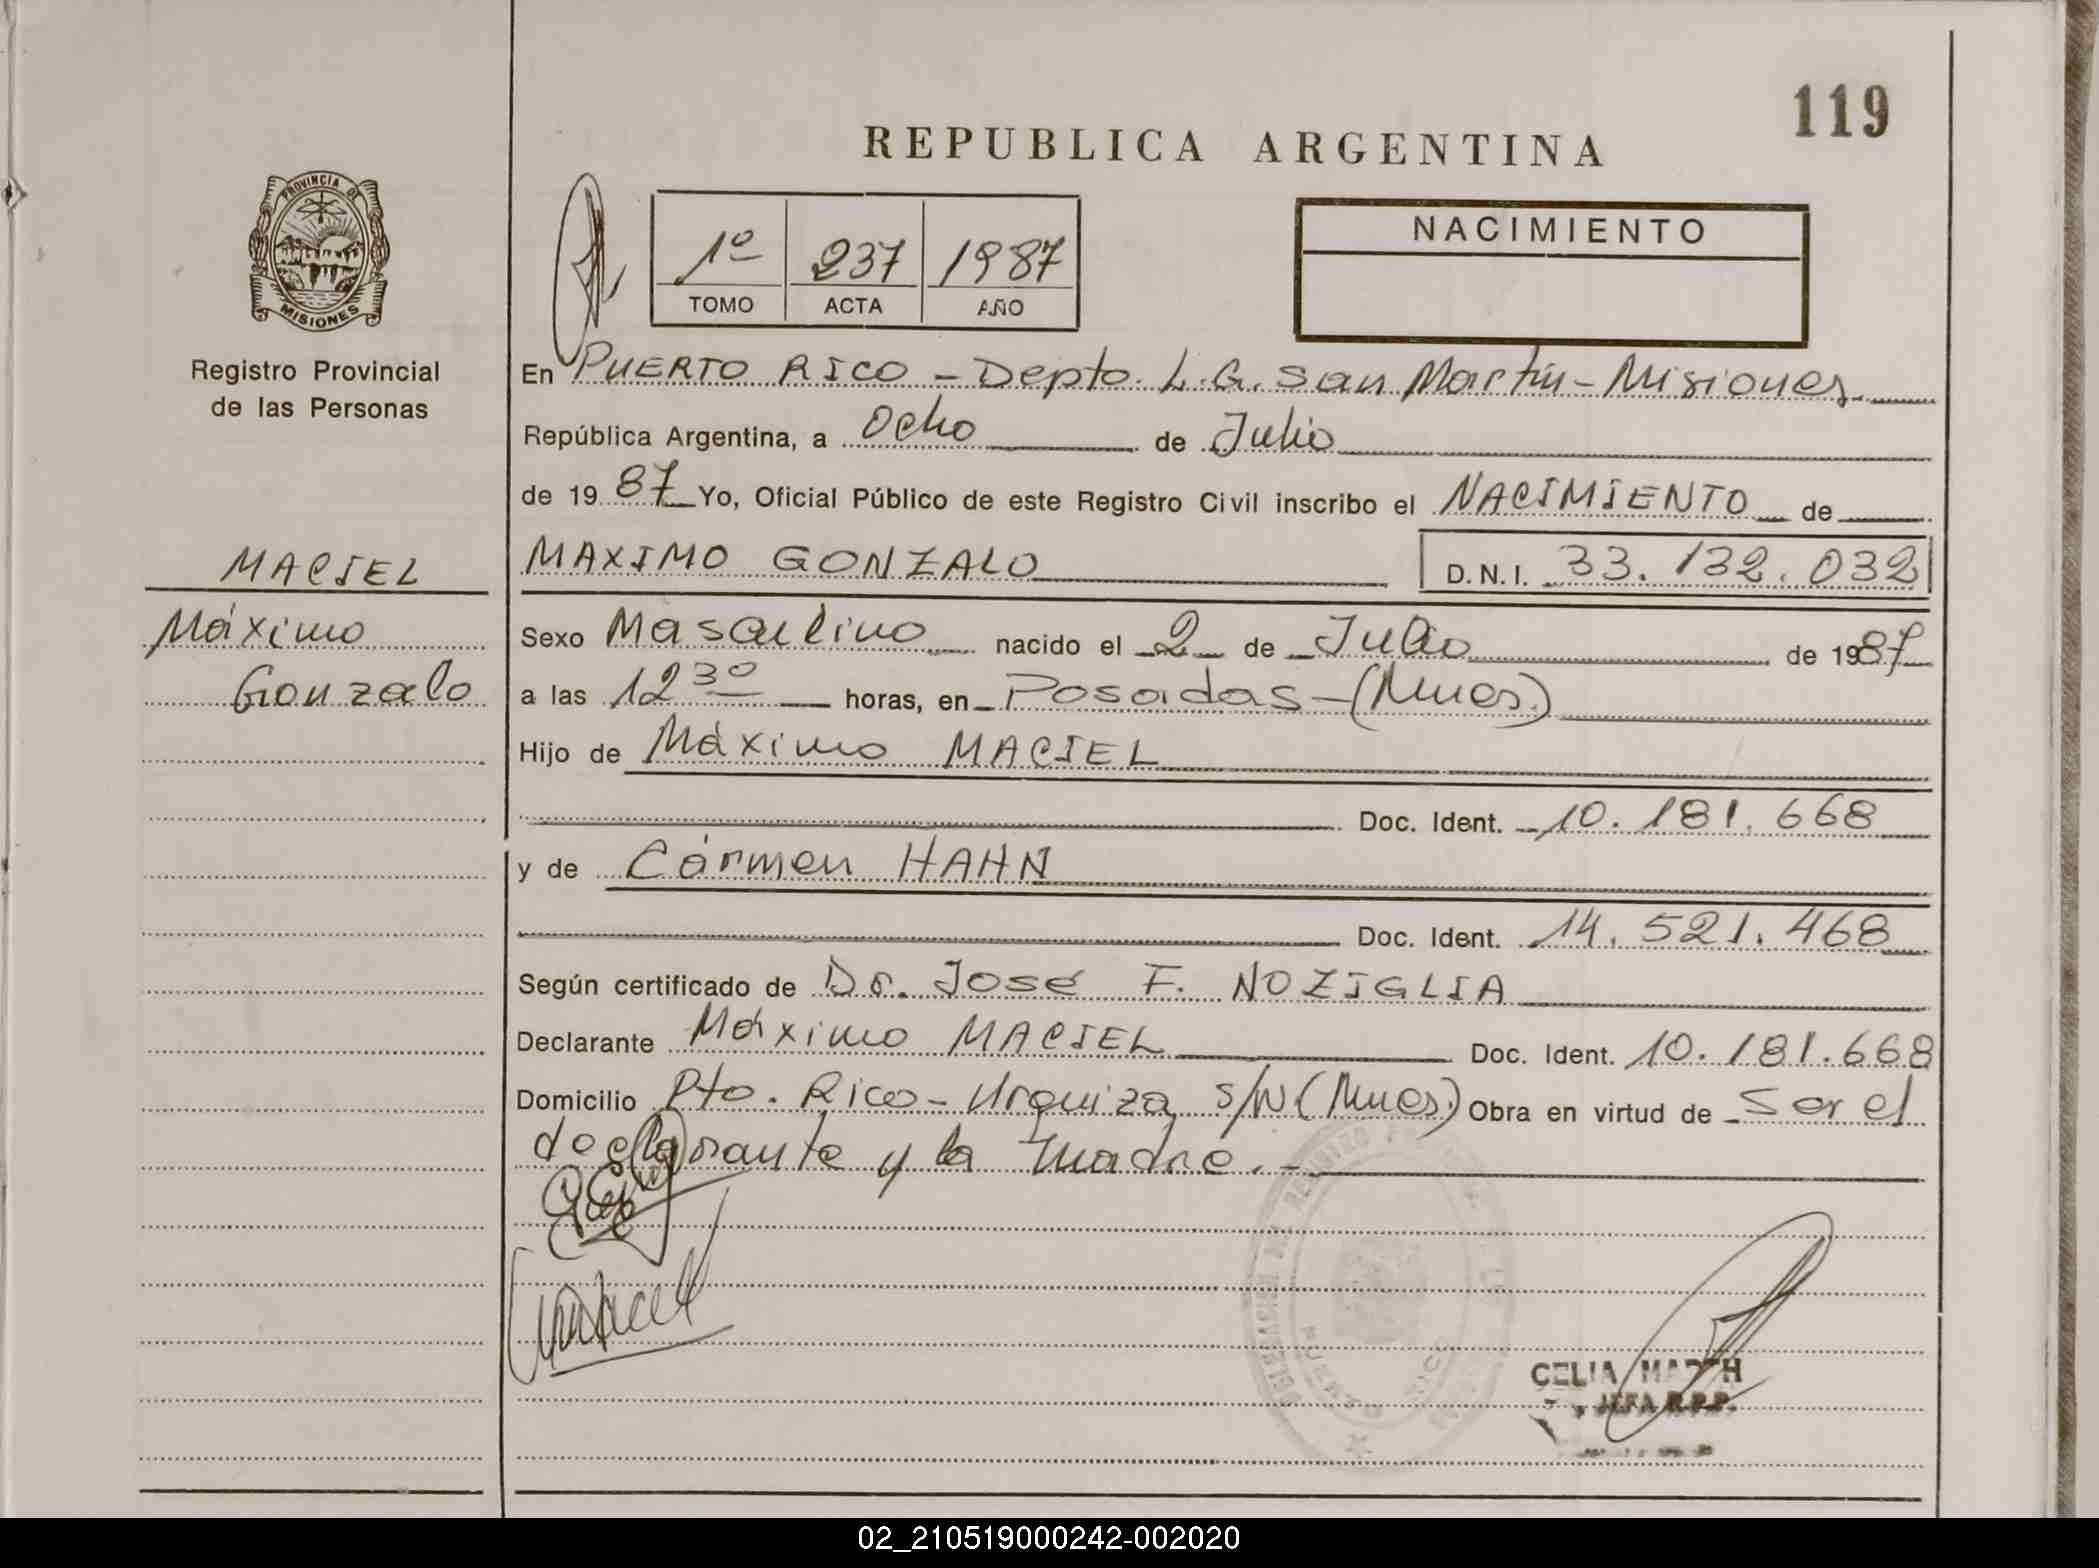 119
REPUBLICA ARGENTINA
PROVINCIA DE
MISIONES
Registro Provincial
de las Personas
1º 237 1987
TOMO ACTA AÑO
NACIMIENTO
En PUERTO RICO - Depto. L.G. San Martín - Misiones
República Argentina, a Ocho de Julio
de 1987 Yo, Oficial Público de este Registro Civil inscribo el NACIMIENTO de
MACIEL
Máximo
Gonzalo
MAXIMO GONZALO D.N.I. 33.132.032
Sexo Masculino nacido el 2 de Julio de 1987
a las 12 30 horas, en Posadas - (Mnes.)
Hijo de Máximo MACIEL
Doc. Ident. 10.181.668
y de Cármen HAHN
Doc. Ident. 14.521.468
Según certificado de Dr. José F. NOZIGLIA
Declarante Máximo MACIEL Doc. Ident. 10.181.668
Domicilio Pto. Rico - Urquiza s/N (Mnes.) Obra en virtud de Ser el
declarante y la madre. -
PUERTO RICO
CELIA
JEFA R.P.P.
02_210519000242-002020